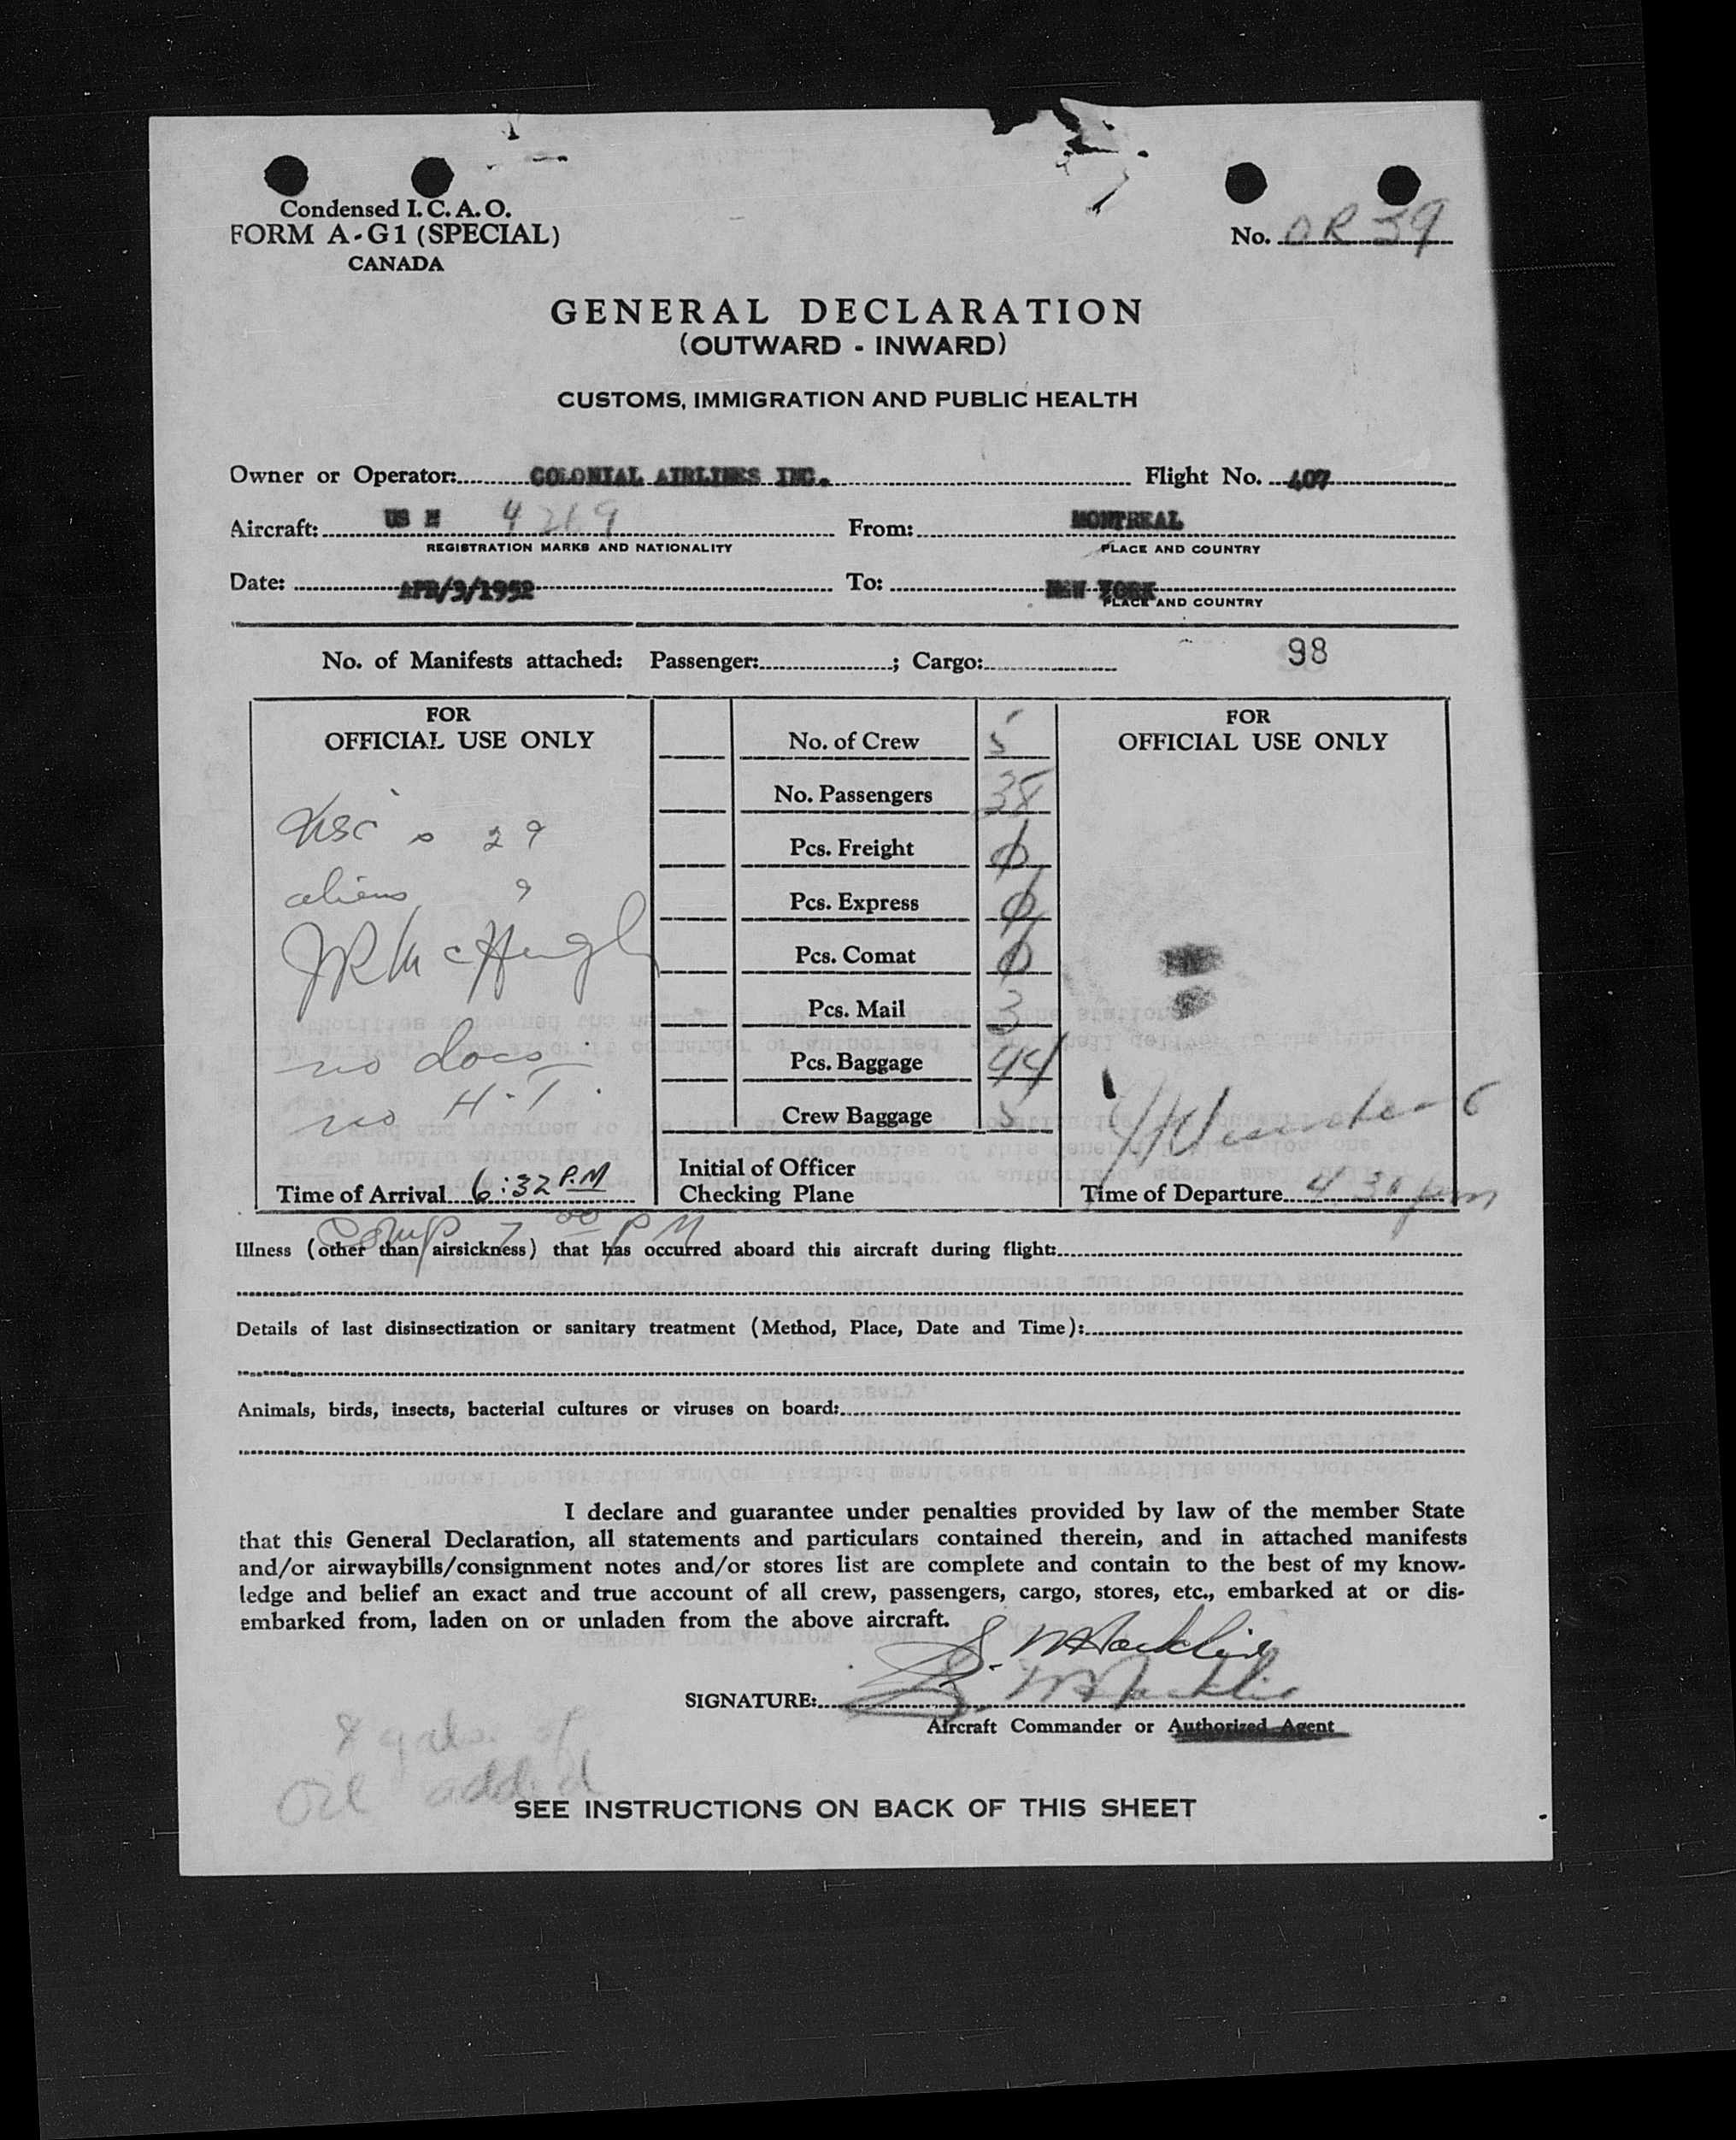 Condensed I. C. A. O.
FORM A-G1 (SPECIAL)
CANADA
No. OR 39
GENERAL DECLARATION
(OUTWARD - INWARD)
CUSTOMS, IMMIGRATION AND PUBLIC HEALTH
Owner or Operator: COLONIAL AIRLINES INC. Flight No. 407
Aircraft: US N 4269 From: MONTREAL
REGISTRATION MARKS AND NATIONALITY PLACE AND COUNTRY
Date: APR/3/1952 To: NEW YORK
PLACE AND COUNTRY
No. of Manifests attached: Passenger: ; Cargo: 98
FOR
OFFICIAL USE ONLY
29
aliens 9
JR McHugh
no docs
no H.T.
Time of Arrival 6:32 P.M
No. of Crew 5
No. Passengers 38
Pcs. Freight 0
Pcs. Express 0
Pcs. Comat 0
Pcs. Mail 3
Pcs. Baggage 44
Crew Baggage 5
Initial of Officer
Checking Plane
FOR
OFFICIAL USE ONLY
Time of Departure 4 30 pm
Comp 7 00 PM
Illness (other than airsickness) that has occurred aboard this aircraft during flight:
Details of last disinsectization or sanitary treatment (Method, Place, Date and Time):
Animals, birds, insects, bacterial cultures or viruses on board:
I declare and guarantee under penalties provided by law of the member State
that this General Declaration, all statements and particulars contained therein, and in attached manifests
and/or airwaybills/consignment notes and/or stores list are complete and contain to the best of my know-
ledge and belief an exact and true account of all crew, passengers, cargo, stores, etc., embarked at or dis-
embarked from, laden on or unladen from the above aircraft.
SIGNATURE:
Aircraft Commander or Authorized Agent
8 gals. of
Oil added
SEE INSTRUCTIONS ON BACK OF THIS SHEET